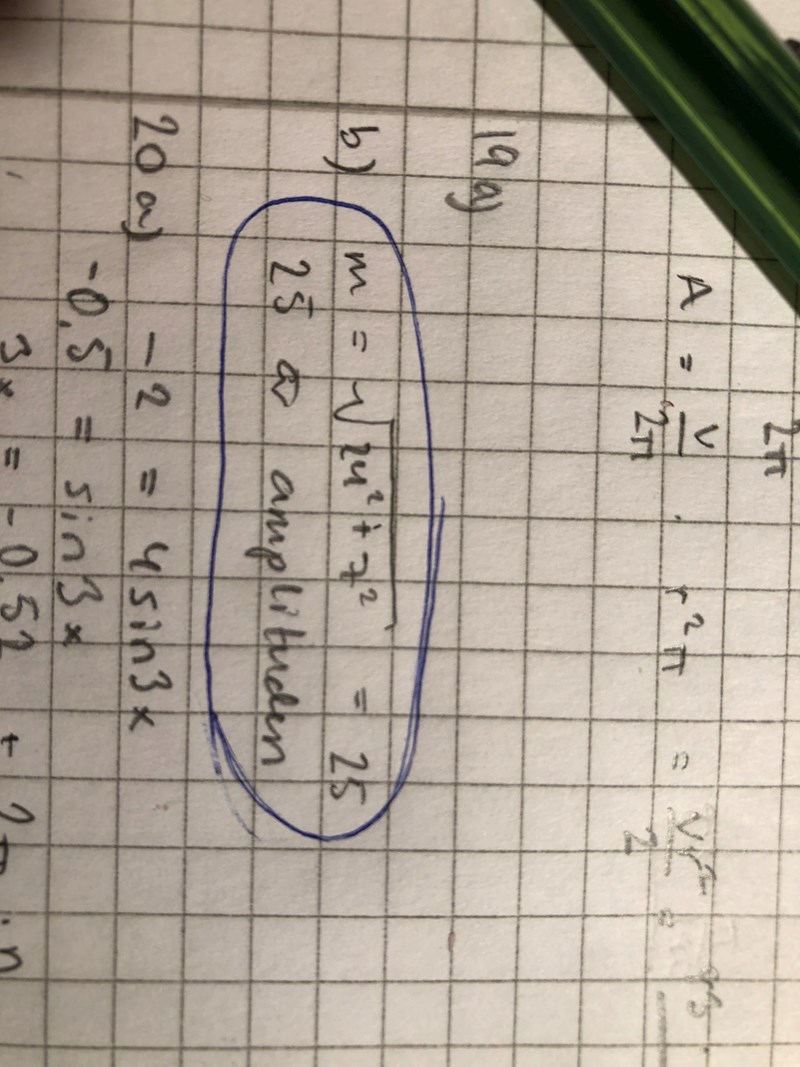 2π
A = v/2π · r²π = vr²/2 =
19 a)
b) m = √24² + 7² = 25
25 är amplituden
20 a) -2 = 4 sin 3x
-0,5 = sin 3x
3x = -0,52 + 2π·n